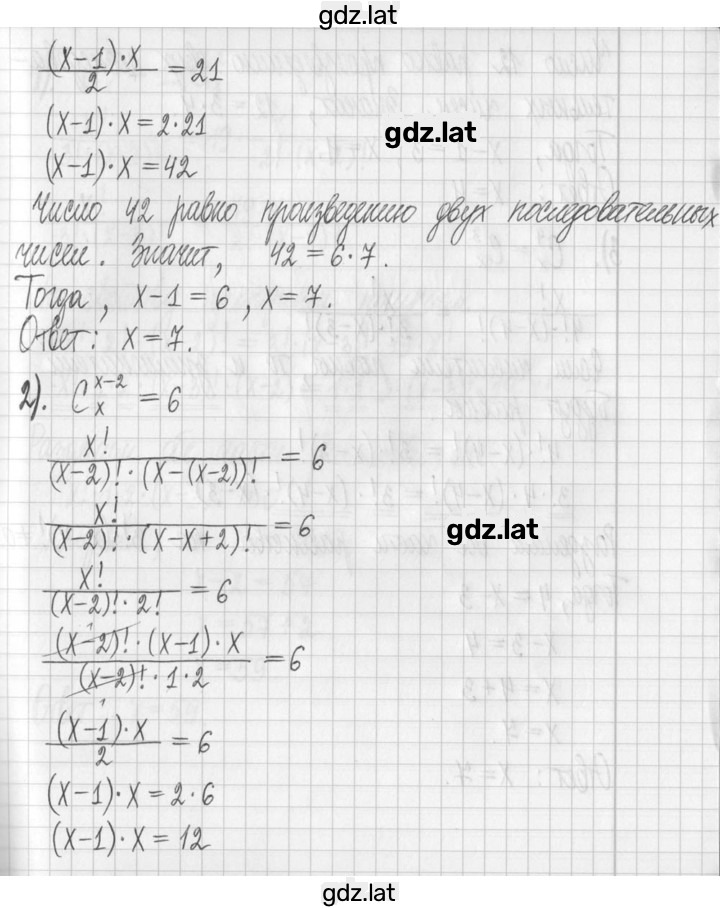 gdz.lat
(x-1)·x / 2 = 21
(x-1)·x = 2·21
gdz.lat
(x-1)·x = 42
Число 42 равно произведению двух последовательных
чисел. Значит, 42 = 6·7.
Тогда, x-1 = 6, x = 7.
Ответ: x = 7.
2). C_x^{x-2} = 6
x! / (x-2)!·(x-(x-2))! = 6
x! / (x-2)!·(x-x+2)! = 6
gdz.lat
x! / (x-2)!·2! = 6
(x-2)!·(x-1)·x / (x-2)!·1·2 = 6
(x-1)·x / 2 = 6
(x-1)·x = 2·6
(x-1)·x = 12
gdz.lat